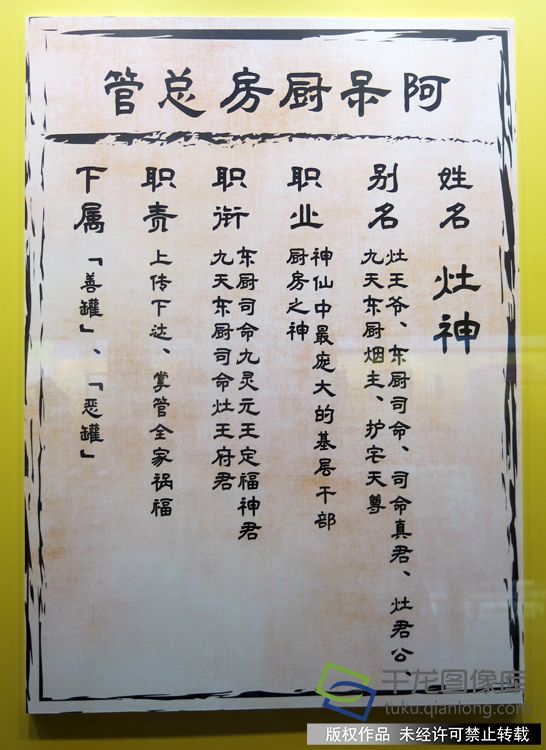 阿呆厨房总管
姓名 灶神
别名
灶王爷、东厨司命、司命真君、灶君公、
九天东厨烟主、护宅天尊
职业
神仙中最庞大的基层干部
厨房之神
职衔
东厨司命九灵元王定福神君
九天东厨司命灶王府君
职责
上传下达、掌管全家祸福
下属
「善罐」、「恶罐」
千龙图像库
tuku.qianlong.com
版权作品 未经许可禁止转载